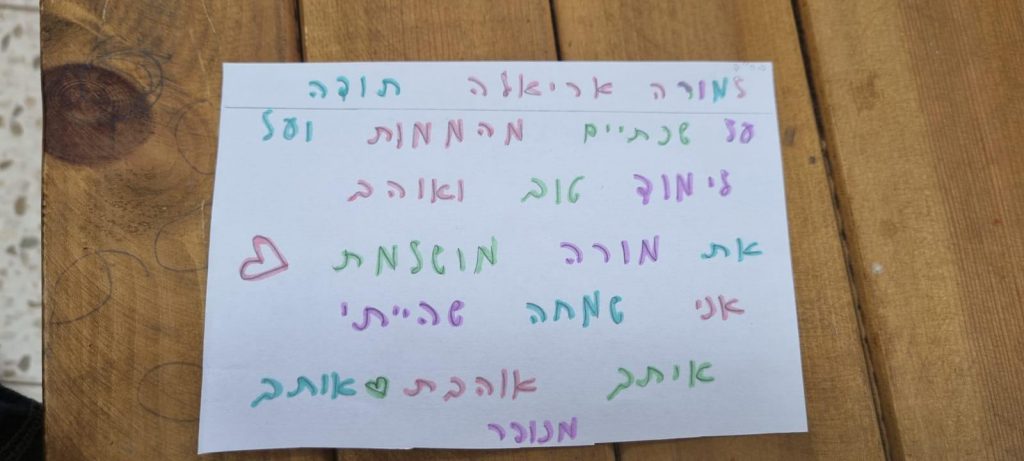 למורה אריאלה תודה
על שנתיים מהממות ועל
לימוד טוב ואוהב
את מורה מושלמת
אני שמחה שהייתי
איתך אוהבת אותך